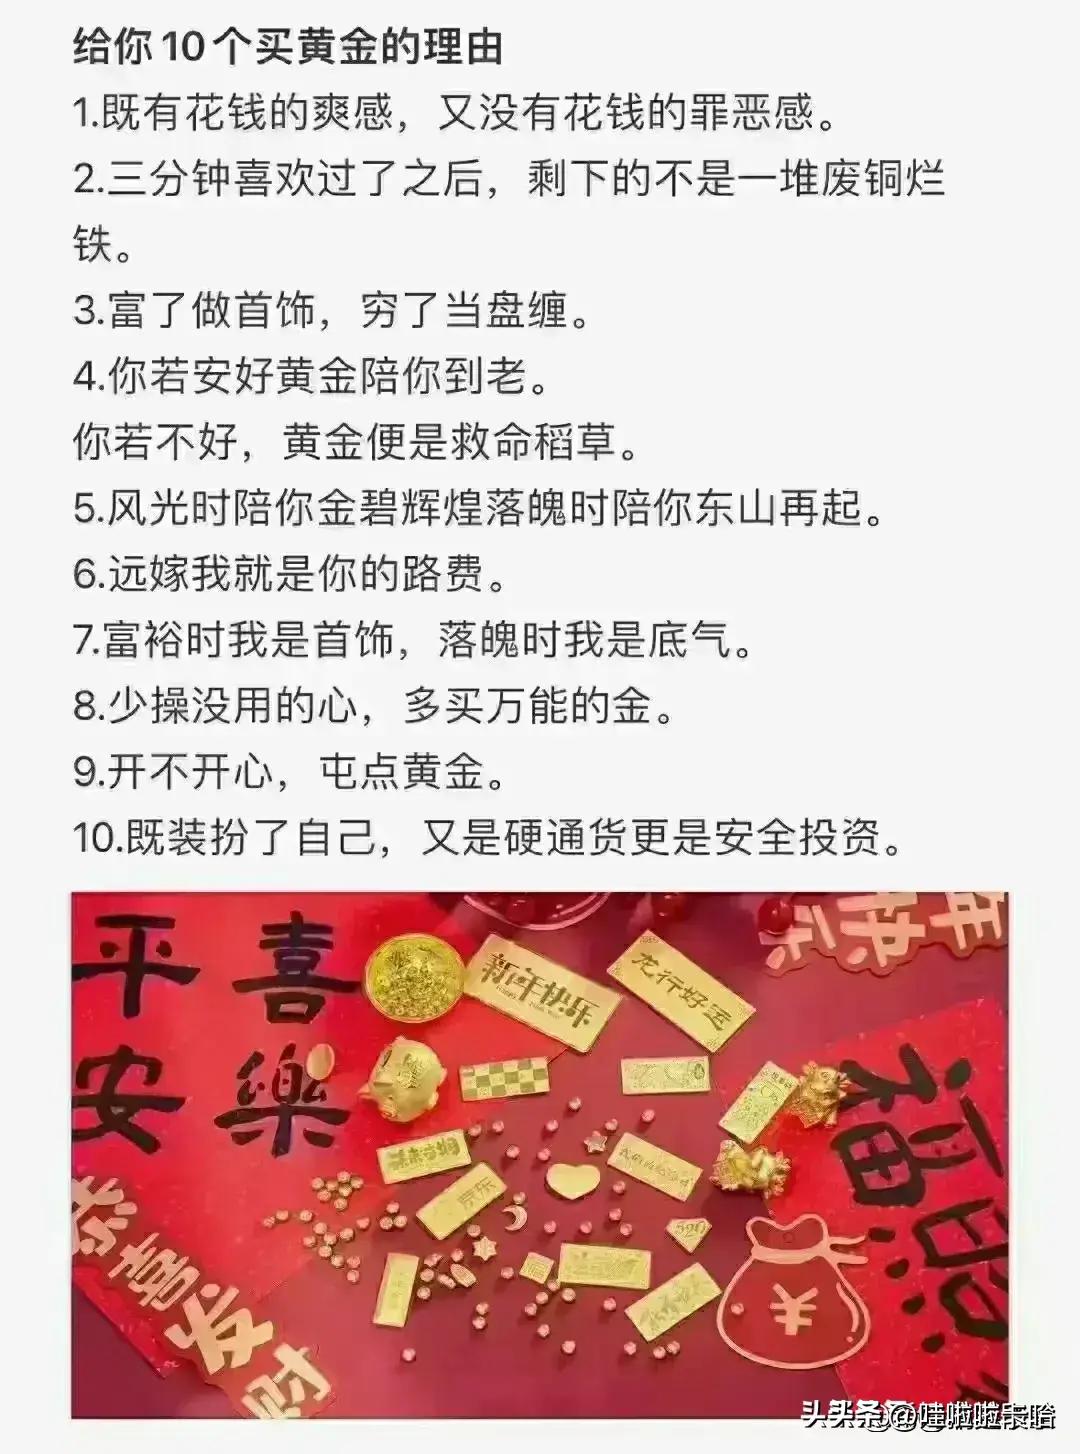 给你10个买黄金的理由
1.既有花钱的爽感，又没有花钱的罪恶感。
2.三分钟喜欢过了之后，剩下的不是一堆废铜烂
铁。
3.富了做首饰，穷了当盘缠。
4.你若安好黄金陪你到老。
你若不好，黄金便是救命稻草。
5.风光时陪你金碧辉煌落魄时陪你东山再起。
6.远嫁我就是你的路费。
7.富裕时我是首饰，落魄时我是底气。
8.少操没用的心，多买万能的金。
9.开不开心，屯点黄金。
10.既装扮了自己，又是硬通货更是安全投资。
平 喜
安 樂
新年快乐
龙行好运
年快乐
福
京东
520
恭喜发财
头条